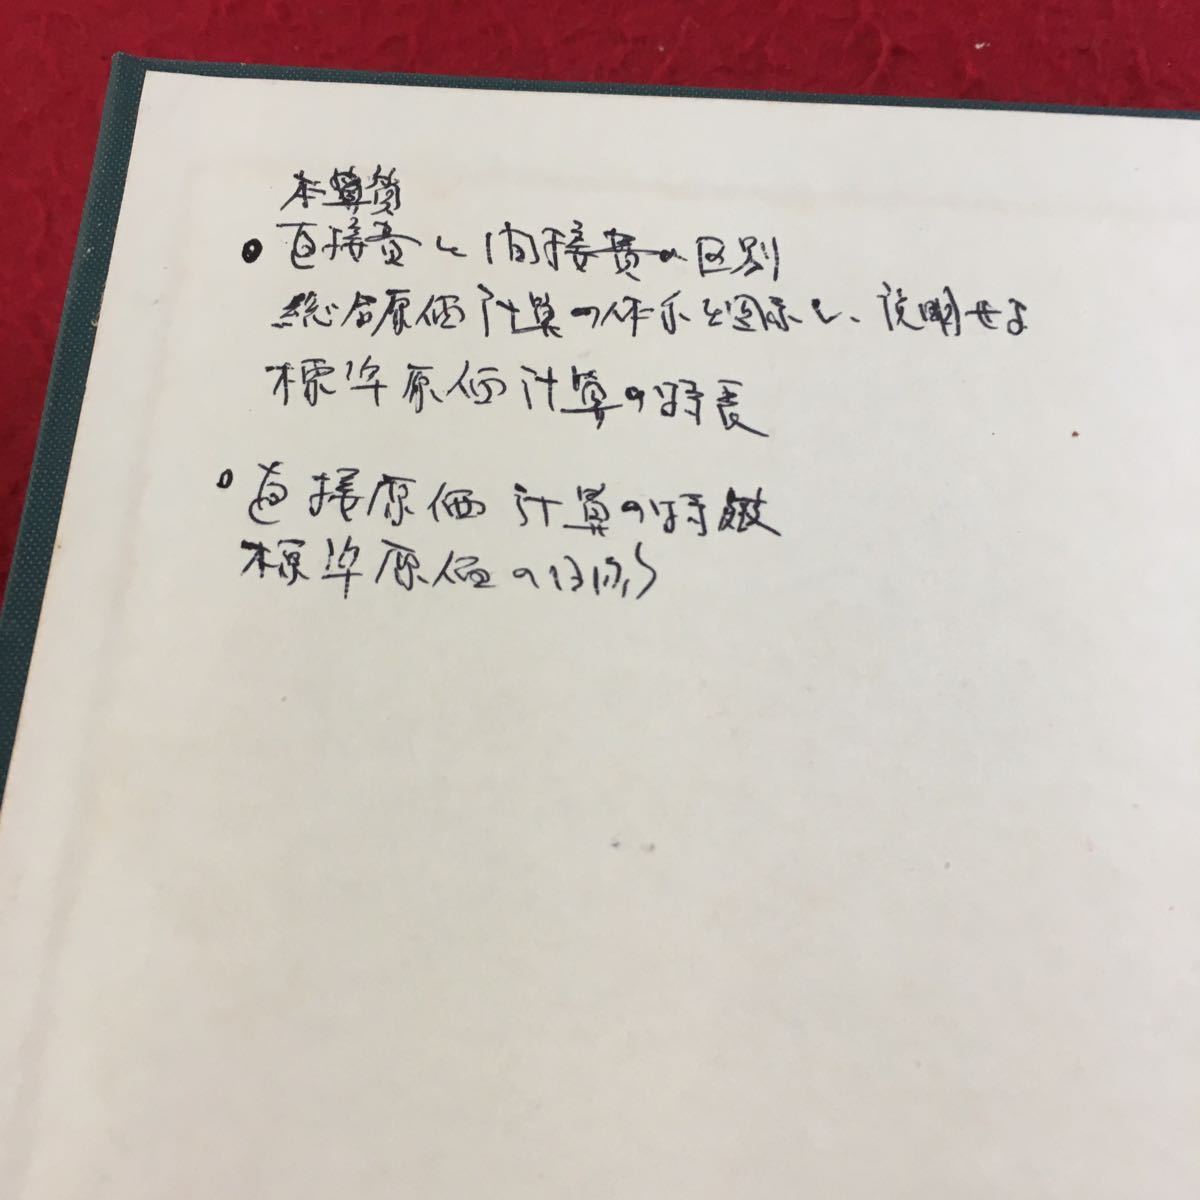 ● 直接費と間接費の区別
総合原価計算の体系を図示し、説明せよ
標準原価計算の特長
○ 直接原価計算の特徴
標準原価の